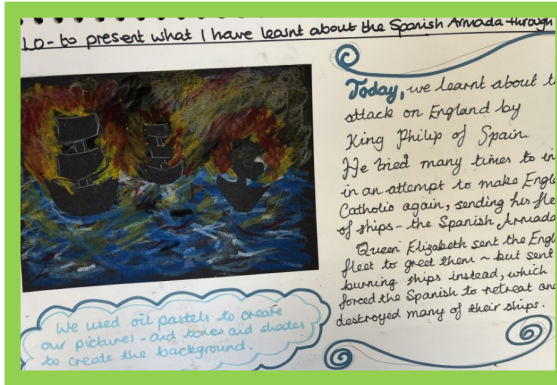 LO- to present what I have learnt about the Spanish Armada through
Today, we learnt about t
attack on England by
King Philip of Spain.
He tried many times to in
in an attempt to make Engl
Catholic again, sending his fle
of ships - the Spanish Armada
Queen Elizabeth sent the Engl
fleet to greet them ~ but sent
burning ships instead, which
forced the Spanish to retreat and
destroyed many of their ships.
We used oil pastels to create
our pictures - and tones and shades
to create the background.